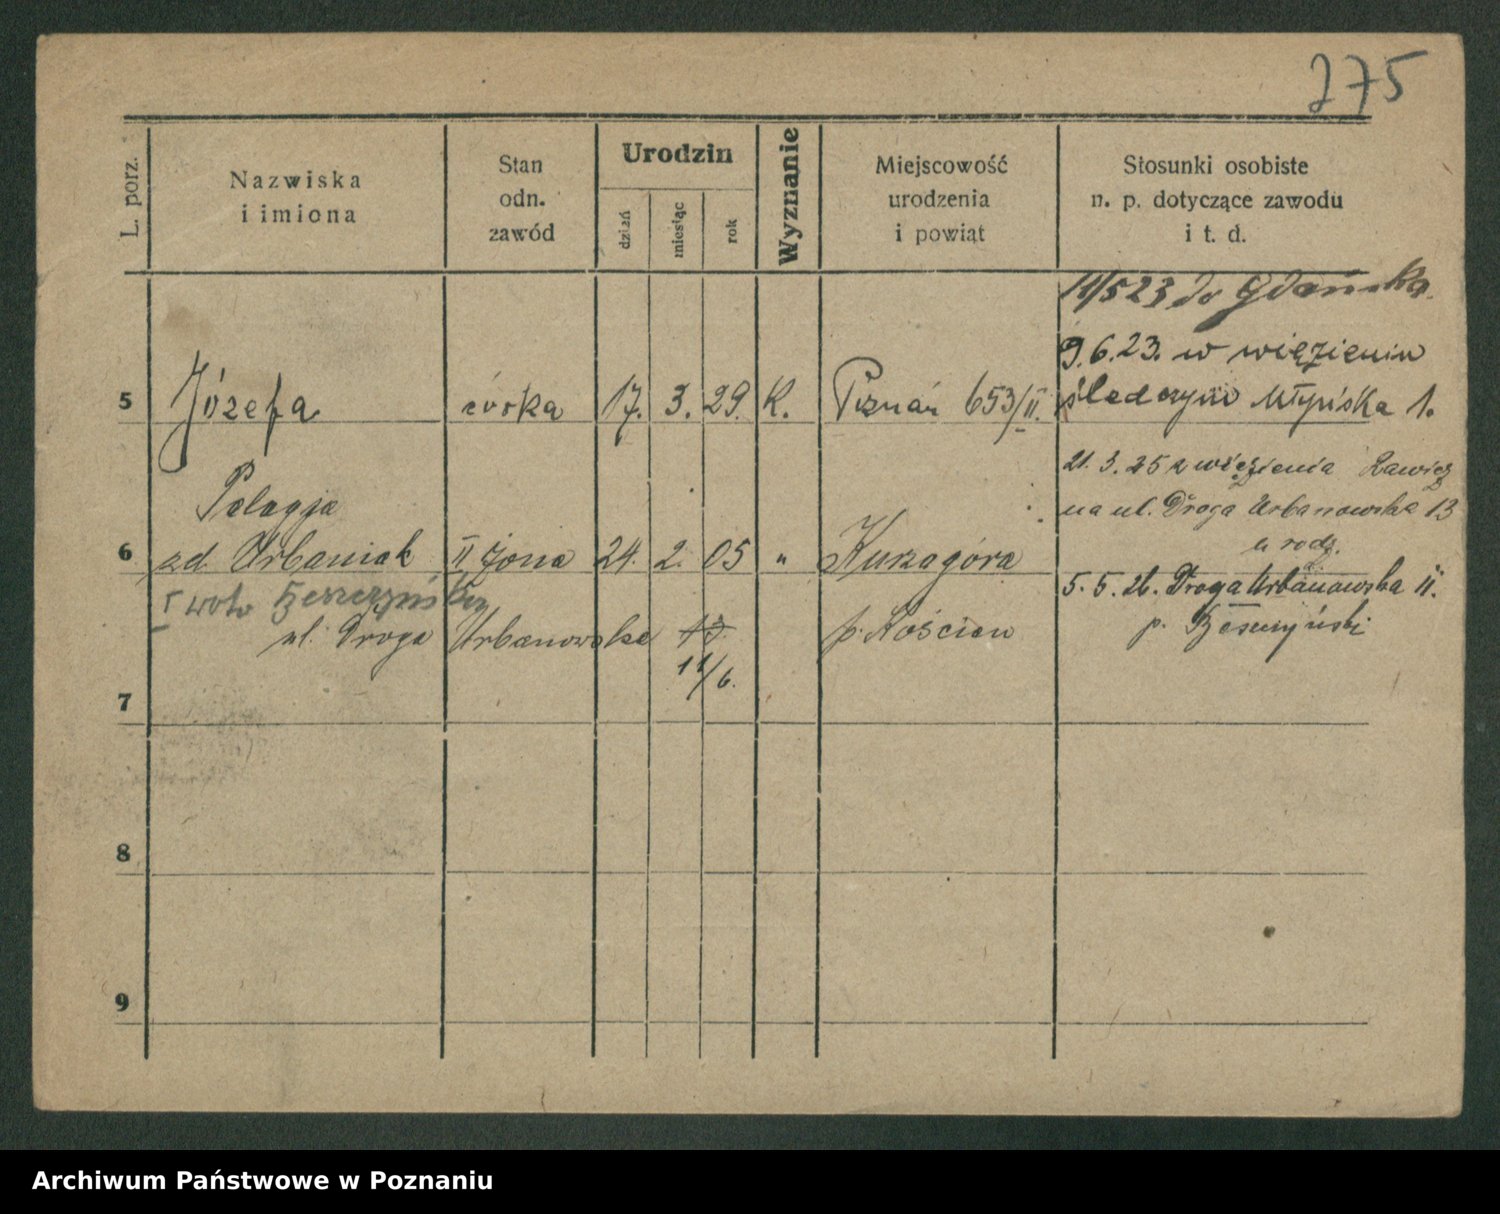 275
L. porz.
Nazwiska
i imiona
Stan
odn.
zawód
Urodzin
dzień
miesiąc
rok
Wyznanie
Miejscowość
urodzenia
i powiat
Stosunki osobiste
n. p. dotyczące zawodu
i t. d.
11/5 23 do Gdańska.
9.6.23. w więzieniu
śledczym Młyńska 1.
5 Józefa córka 17. 3. 29. K. Poznań 653/II.
21. 3. 25 z więzienia Rawicz
na ul. Droga Urbanowska 13
u rodz.
Pelagja
6 zd. Urbaniak II żona 24. 2. 05 " Kurzagóra
5. 5. 26. Droga Urbanowska 11.
I voto
p.
ul. Droga Urbanowska 13
p. Kościan
11/6.
7
8
9
Archiwum Państwowe w Poznaniu